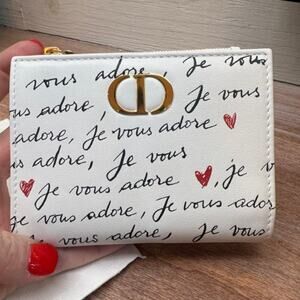 vous adore, je vous
us adore, je vous
CD
adore, Je vous adore
us adore, Je vous
Je vous adore, je vous
je vous adore, je v
adore, Je vous adore, je
vous adore, Je